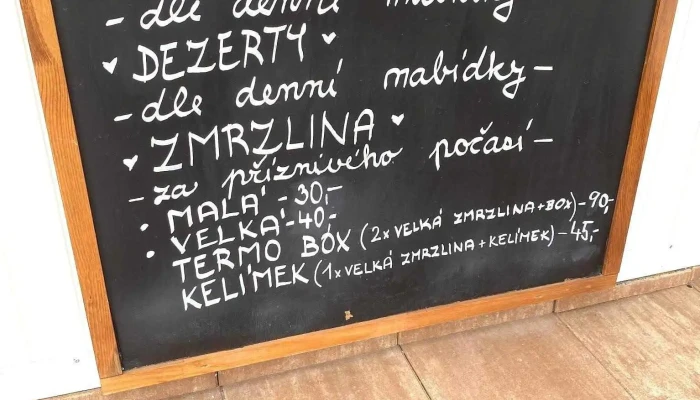 - dle denní nabídky
♥ DEZERTY ♥
- dle denní nabídky -
♥ ZMRZLINA ♥
- za příznivého počasí -
• MALÁ - 30,-
• VELKÁ - 40,-
TERMO BOX (2x VELKÁ ZMRZLINA + BOX) - 90,-
KELÍMEK (1x VELKÁ ZMRZLINA + KELÍMEK) - 45,-